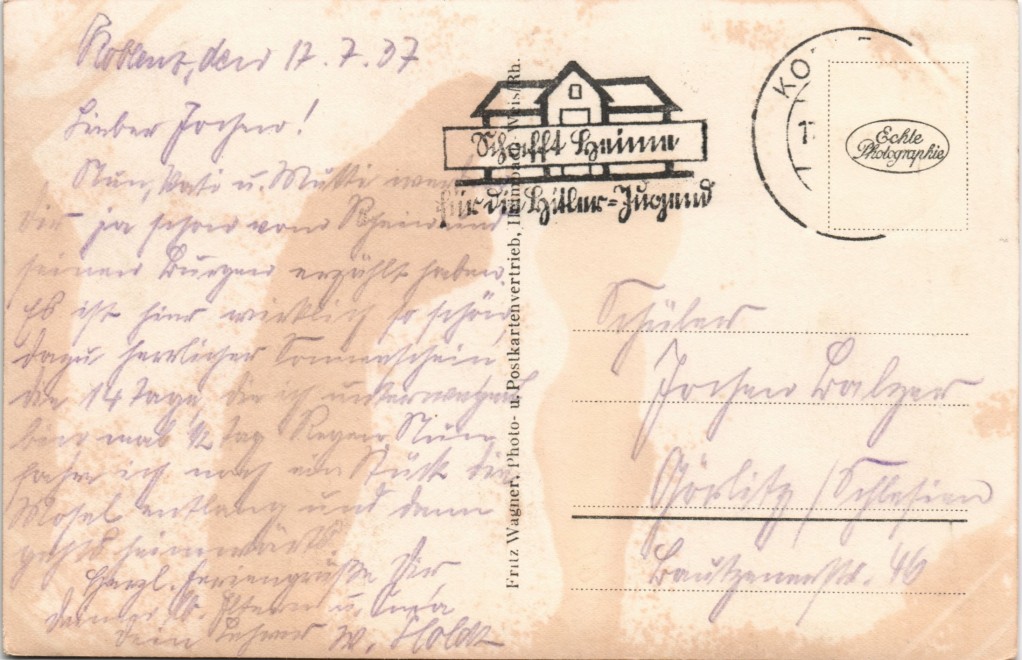 Koblenz, den 17.7.37
Lieber Jochen!
Nun, Vati u. Mutti werden
dir ja schon vom Rhein und
seinen Burgen erzählt haben.
Es ist hier wirklich so schön,
dazu herrlicher Sonnenschein,
die 14 Tage die ich unterwegs
bin mal ½ Tag Regen. Nun
fahre ich noch ein Stück die
Mosel entlang und dann
gehts heimwärts.
Herzl. Feriengrüße Dir,
Eltern u.
dein Lehrer W. Holdt
Fritz Wagner, Photo- u. Postkartenvertrieb, Heimbach-Weis/Rh.
Schafft Heime
für die Hitler-Jugend
KO
1
Echte
Photographie
Schüler
Jochen Balzer
Görlitz / Schlesien
Bautzenerstr. 46